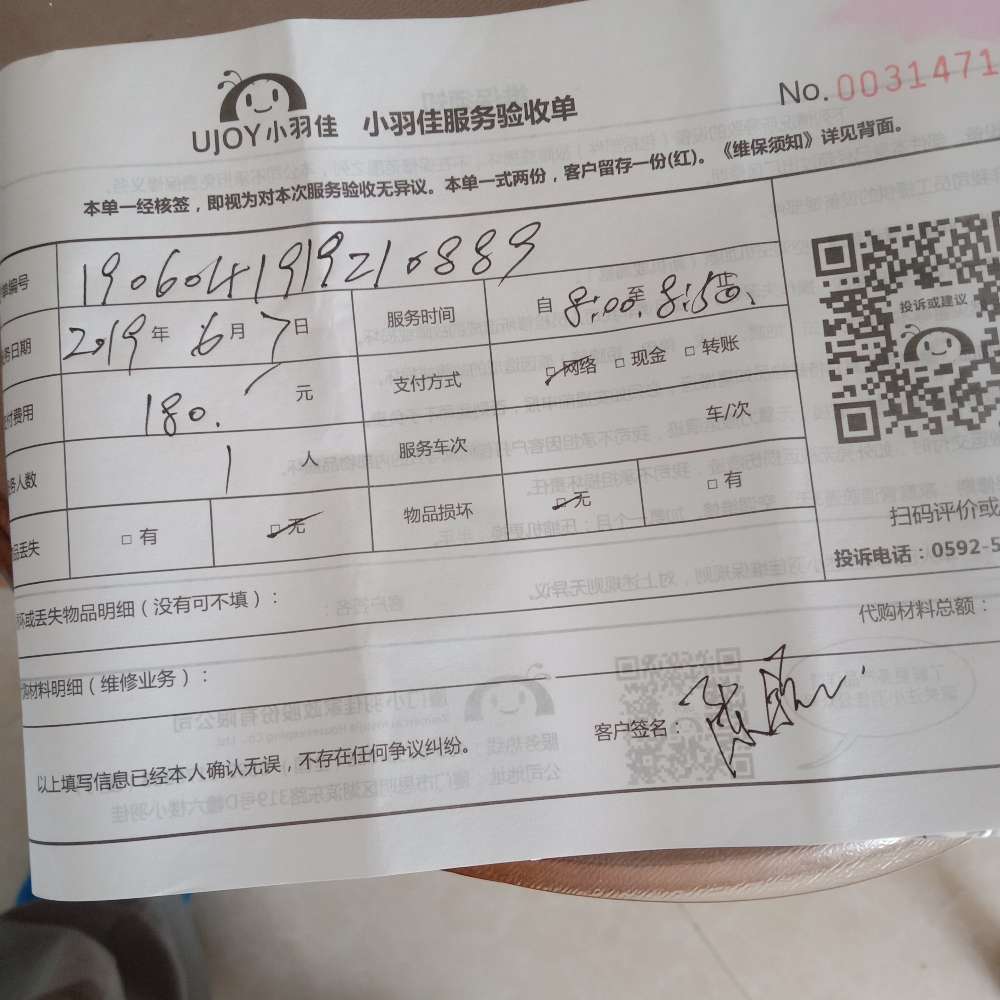 UJOY小羽佳 小羽佳服务验收单 No.0031471
本单一经核签，即视为对本次服务验收无异议。本单一式两份，客户留存一份(红)。《维保须知》详见背面。
单编号 1906041919210889
务日期 2019年 6月 7日 服务时间 自 8:00 至 8:50
付费用 180. 元 支付方式 □ 网络 □ 现金 □ 转账
务人数 1 人 服务车次 车/次
品丢失 □ 有 □ 无 物品损坏 □ 无 □ 有
投诉或建议
扫码评价或
投诉电话：0592-5
坏或丢失物品明细（没有可不填）：
代购材料总额：
材料明细（维修业务）：
以上填写信息已经本人确认无误，不存在任何争议纠纷。
客户签名：